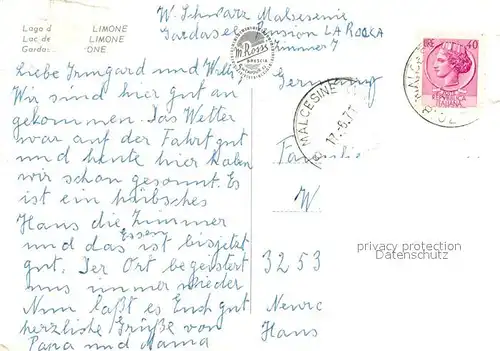 Lago d LIMONE
Lac de LIMONE
Gardas ONE
W. Schwarz Malcesine
Gardasee Pension LA ROCCA
Zimmer 7
Germany
Liebe Irmgard und Willi
Wir sind hier gut an
gekommen. Das Wetter
war auf der Fahrt gut
und heute hier haben
wir schon gesonnt. Es
ist ein hübsches
Haus die Zimmer
und das Essen ist bis jetzt
gut. Der Ort begeistert
uns immer wieder
Nun laßt es Euch gut
herzliche Grüße von
Papa und Mama
MALCESINE
LIRE 40
REPUBBLICA
ITALIANA
BRESCIA
Familie
W
privacy protection
Datenschutz
3253
Hans